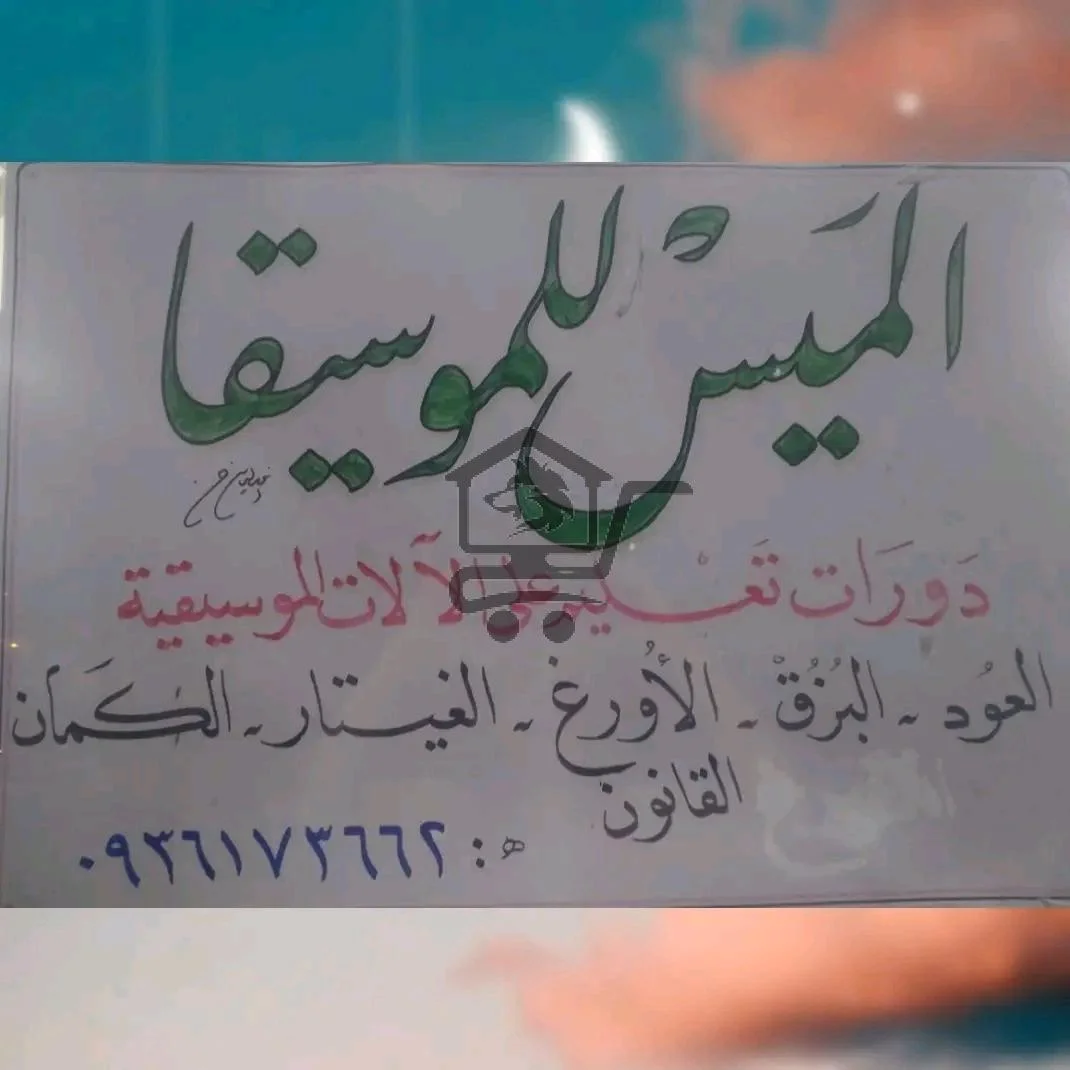 الميَسْ للموسيقا
دَورَات تَعْليم على الآلات الموسيقية
العُود - البُزُقْ - الأُورغ - الغيتار - الكمَان
القانون
ه : ٠٩٣٦١٧٣٦٦٢